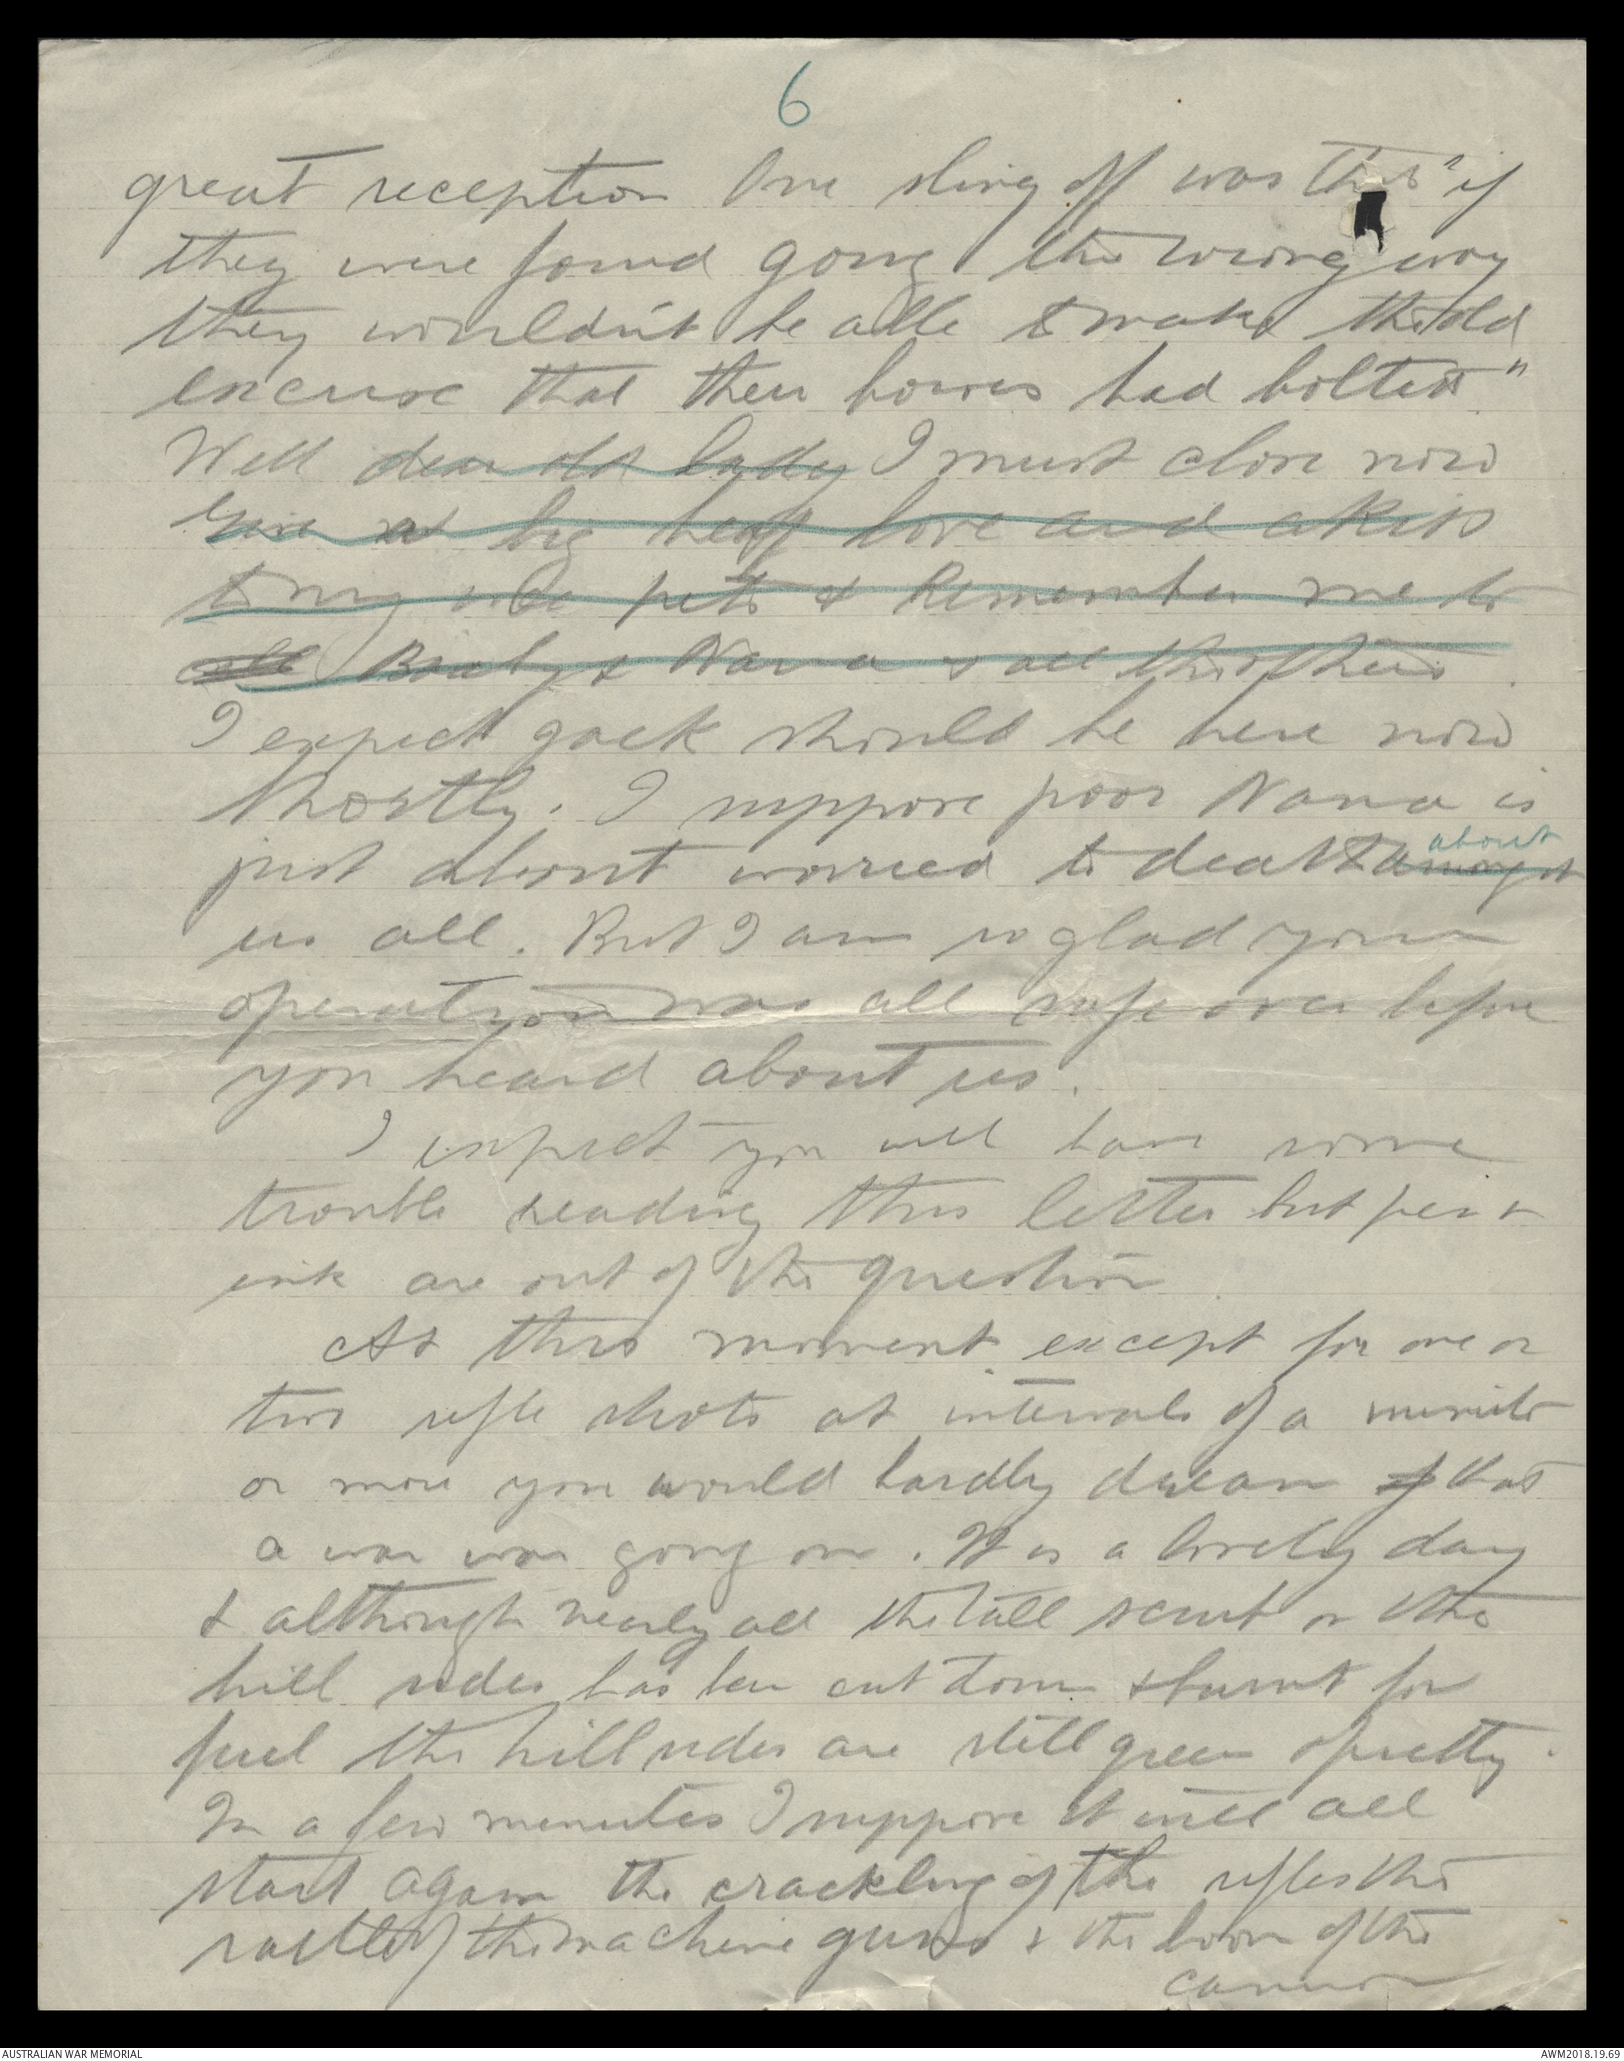 6
great reception One sling off was this "if
they were found going the wrong way
they wouldn't be able to make the old
excuse that their horses had bolted"
Well dear old lady I must close now
Give a big heap love and a kiss
to my wee pets & Remember me to
all Braby & Nana & all the others.
I expect Jack should be here now
shortly. I suppose poor Nana is
just about worried to death amongst about
us all. But I am so glad your
operation was all safe over before
you heard about us.
I expect you will have some
trouble reading this letter but pen &
ink are out of the question.
At this moment except for one or
two rifle shots at intervals of a minute
or more you would hardly dream of that
a war was going on. It is a lovely day
& although nearly all the tall scrub on the
hill sides has been cut down & burnt for
fuel the hill sides are still green & pretty.
In a few minutes I suppose it will all
start again the crackling of the rifles the
rattle of the machine guns & the boom of the
cannon
AUSTRALIAN WAR MEMORIAL
AWM2018.19.69